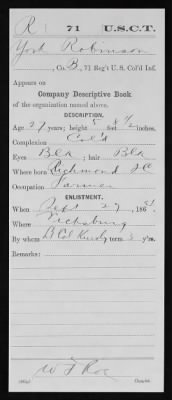 R | 71 | U.S.C.T.
York Robinson
, Co. B, 71 Reg't U. S. Col'd Inf.
Appears on
Company Descriptive Book
of the organization named above.
DESCRIPTION.
Age 27 years; height 5 feet 8 1/2 inches.
Complexion Col'd
Eyes Blk ; hair Blk
Where born Richmond
Occupation Farmer
ENLISTMENT.
When Sept 27, 186
Where Vicksburg
By whom B Col term 3 y'rs.
Remarks:
Copyist.